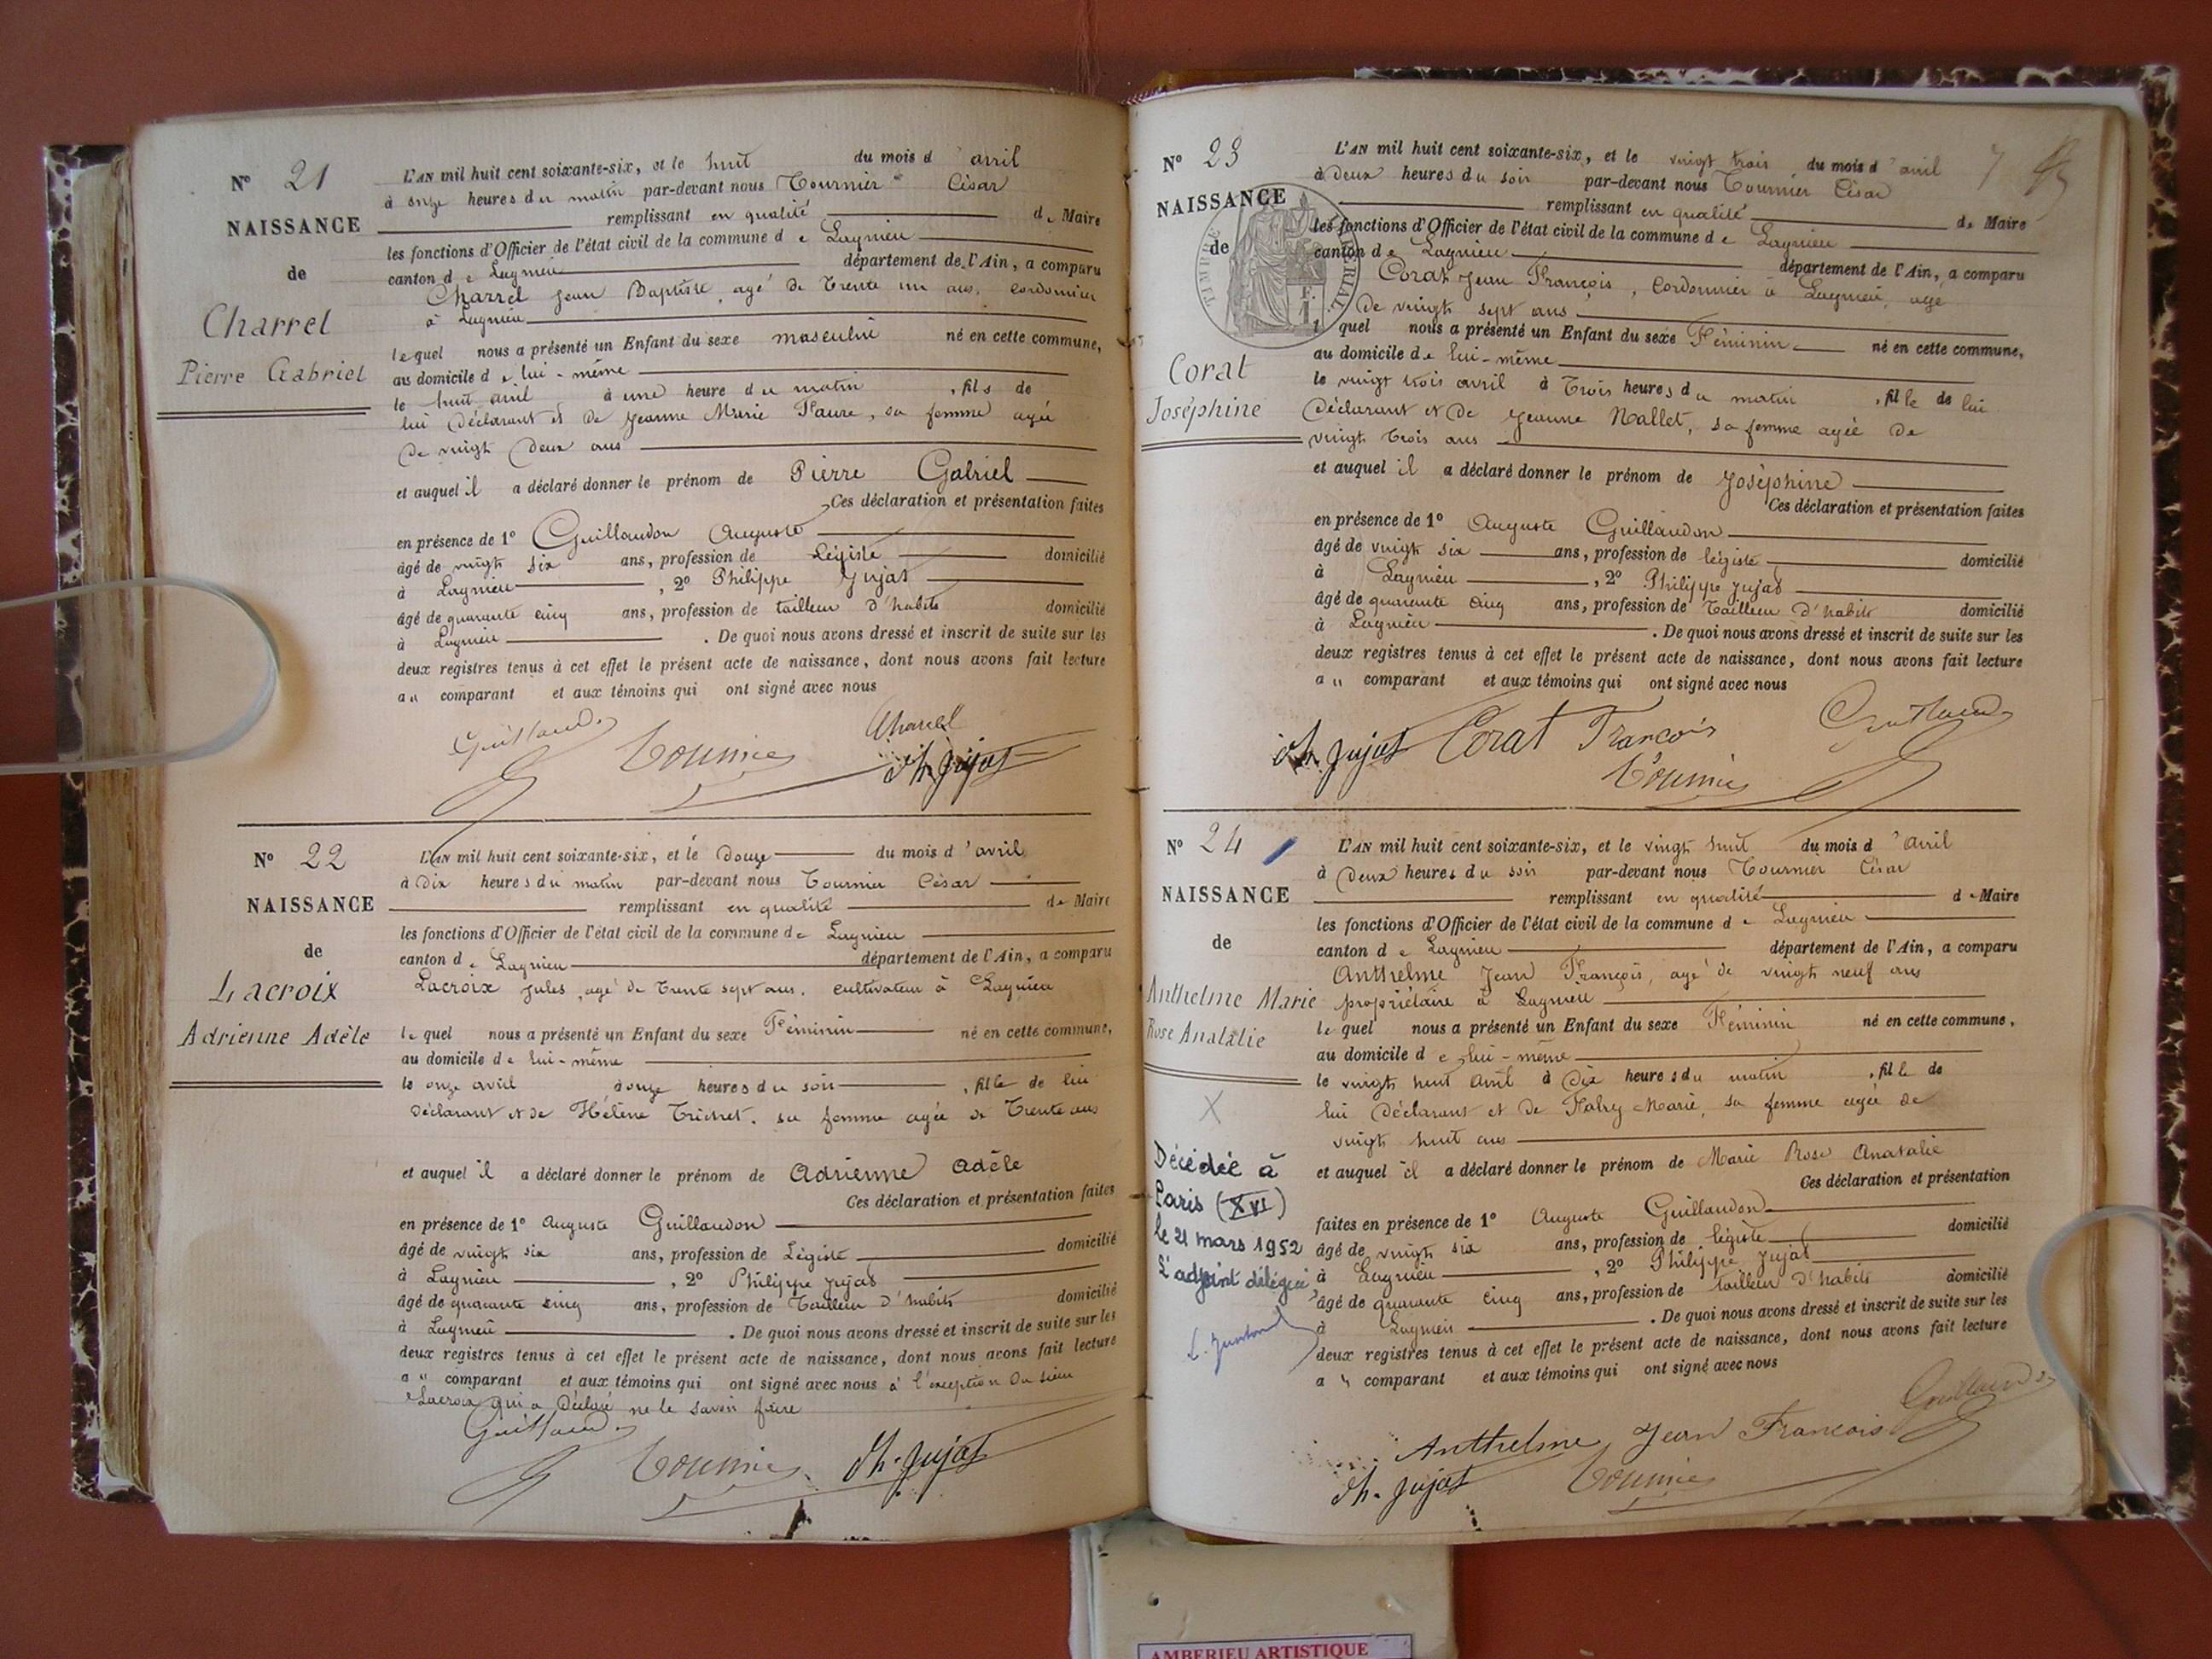 N° 21
NAISSANCE
de
Charrel
Pierre Gabriel
L'AN mil huit cent soixante-six, et le huit du mois d'avril
à onze heures du matin par-devant nous Tournier César
remplissant en qualité de Maire
les fonctions d'Officier de l'état civil de la commune de Lagnieu
canton de Lagnieu département de l'Ain, a comparu
Charrel Jean Baptiste, agé de trente un ans, cordonnier
à Lagnieu
lequel nous a présenté un Enfant du sexe masculin né en cette commune,
au domicile de lui-même
le huit avril à une heure du matin, fils de
lui déclarant et de Jeanne Marie Faure, sa femme agée
de vingt deux ans
et auquel il a déclaré donner le prénom de Pierre Gabriel
Ces déclaration et présentation faites
en présence de 1° Guillaudon Auguste
âgé de vingt six ans, profession de Légiste domicilié
à Lagnieu, 2° Philippe Jujat
âgé de quarante cinq ans, profession de tailleur d'habits domicilié
à Lagnieu. De quoi nous avons dressé et inscrit de suite sur les
deux registres tenus à cet effet le présent acte de naissance, dont nous avons fait lecture
au comparant et aux témoins qui ont signé avec nous
Guillaudon Tournier Charrel
Ph. Jujat
N° 22
NAISSANCE
de
Lacroix
Adrienne Adèle
L'AN mil huit cent soixante-six, et le douze du mois d'avril
à dix heures du matin par-devant nous Tournier César
remplissant en qualité de Maire
les fonctions d'Officier de l'état civil de la commune de Lagnieu
canton de Lagnieu département de l'Ain, a comparu
Lacroix Jules, agé de trente sept ans, cultivateur à Lagnieu
lequel nous a présenté un Enfant du sexe Féminin né en cette commune,
au domicile de lui-même
le onze avril à onze heures du soir, fille de lui
déclarant et de Hélène Trichet, sa femme agée de trente ans
et auquel il a déclaré donner le prénom de Adrienne Adèle
Ces déclaration et présentation faites
en présence de 1° Auguste Guillaudon
âgé de vingt six ans, profession de Légiste domicilié
à Lagnieu, 2° Philippe Jujat
âgé de quarante cinq ans, profession de Tailleur d'habits domicilié
à Lagnieu. De quoi nous avons dressé et inscrit de suite sur les
deux registres tenus à cet effet le présent acte de naissance, dont nous avons fait lecture
au comparant et aux témoins qui ont signé avec nous à l'exception du sieur
Lacroix qui a déclaré ne le savoir faire
Guillaudon Tournier Ph. Jujat
N° 23
NAISSANCE
de
TIMBRE IMPERIAL
Corat
Joséphine
L'AN mil huit cent soixante-six, et le vingt trois du mois d'avril
à deux heures du soir par-devant nous Tournier César
remplissant en qualité de Maire
les fonctions d'Officier de l'état civil de la commune de Lagnieu
canton de Lagnieu département de l'Ain, a comparu
Corat Jean François, Cordonnier à Lagnieu, agé
de vingt sept ans
lequel nous a présenté un Enfant du sexe Féminin né en cette commune,
au domicile de lui-même
le vingt trois avril à trois heures du matin, fille de lui
déclarant et de Jeanne Nallet, sa femme agée de
vingt trois ans
et auquel il a déclaré donner le prénom de Joséphine
Ces déclaration et présentation faites
en présence de 1° Auguste Guillaudon
âgé de vingt six ans, profession de légiste domicilié
à Lagnieu, 2° Philippe Jujat
âgé de quarante cinq ans, profession de Tailleur d'habits domicilié
à Lagnieu. De quoi nous avons dressé et inscrit de suite sur les
deux registres tenus à cet effet le présent acte de naissance, dont nous avons fait lecture
au comparant et aux témoins qui ont signé avec nous
Ph. Jujat Corat François Guillaudon
Tournier
N° 24
NAISSANCE
de
Anthelme Marie
Rose Anatalie
X
Décédée à
Paris (XVI)
le 21 mars 1952
L'adjoint délégué
L'AN mil huit cent soixante-six, et le vingt huit du mois d'avril
à deux heures du soir par-devant nous Tournier César
remplissant en qualité de Maire
les fonctions d'Officier de l'état civil de la commune de Lagnieu
canton de Lagnieu département de l'Ain, a comparu
Anthelme Jean François, agé de vingt neuf ans
propriétaire à Lagnieu
lequel nous a présenté un Enfant du sexe Féminin né en cette commune,
au domicile de lui-même
le vingt huit avril à dix heures du matin, fille de
lui déclarant et de Falry Marie, sa femme agée de
vingt huit ans
et auquel il a déclaré donner le prénom de Marie Rose Anatalie
Ces déclaration et présentation
faites en présence de 1° Auguste Guillaudon
âgé de vingt six ans, profession de légiste domicilié
à Lagnieu, 2° Philippe Jujat
âgé de quarante cinq ans, profession de tailleur d'habits domicilié
à Lagnieu. De quoi nous avons dressé et inscrit de suite sur les
deux registres tenus à cet effet le présent acte de naissance, dont nous avons fait lecture
au comparant et aux témoins qui ont signé avec nous
Guillaudon
Anthelme Jean François
Ph. Jujat Tournier
AMBERIEU ARTISTIQUE